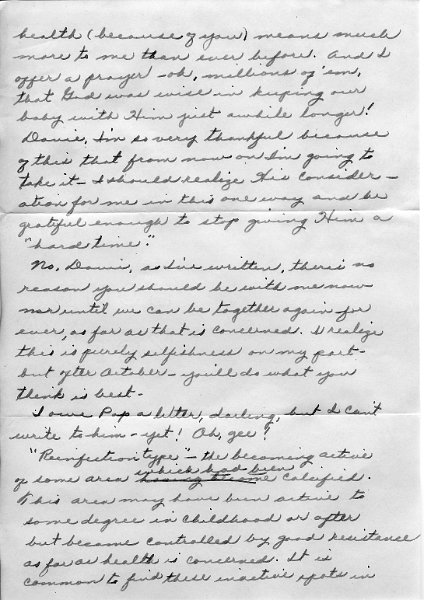 health (because of you) means much
more to me than ever before. And I
offer a prayer - oh, millions of 'em,
that God was wise in keeping our
baby with Him just awhile longer!
Davie, I'm so very thankful because
of this that from now on I'm going to
take it - I should realize His consider-
ation for me in this one way and be
grateful enough to stop giving Him a
"hard time."
No, Davie, as I've written, there's no
reason you should be with me now
nor until we can be together again for
ever, as far as that is concerned. I realize
this is purely selfishness on my part -
but after October - you'll do what you
think is best -
I owe Pop a letter, darling, but I can't
write to him - yet! Oh, gee!
"Reinfection type" - the becoming active
of some area which had been having become calcified.
This area may have been active to
some degree in childhood or after
but became controlled by good resistance
as far as health is concerned. It is
common to find these inactive spots in